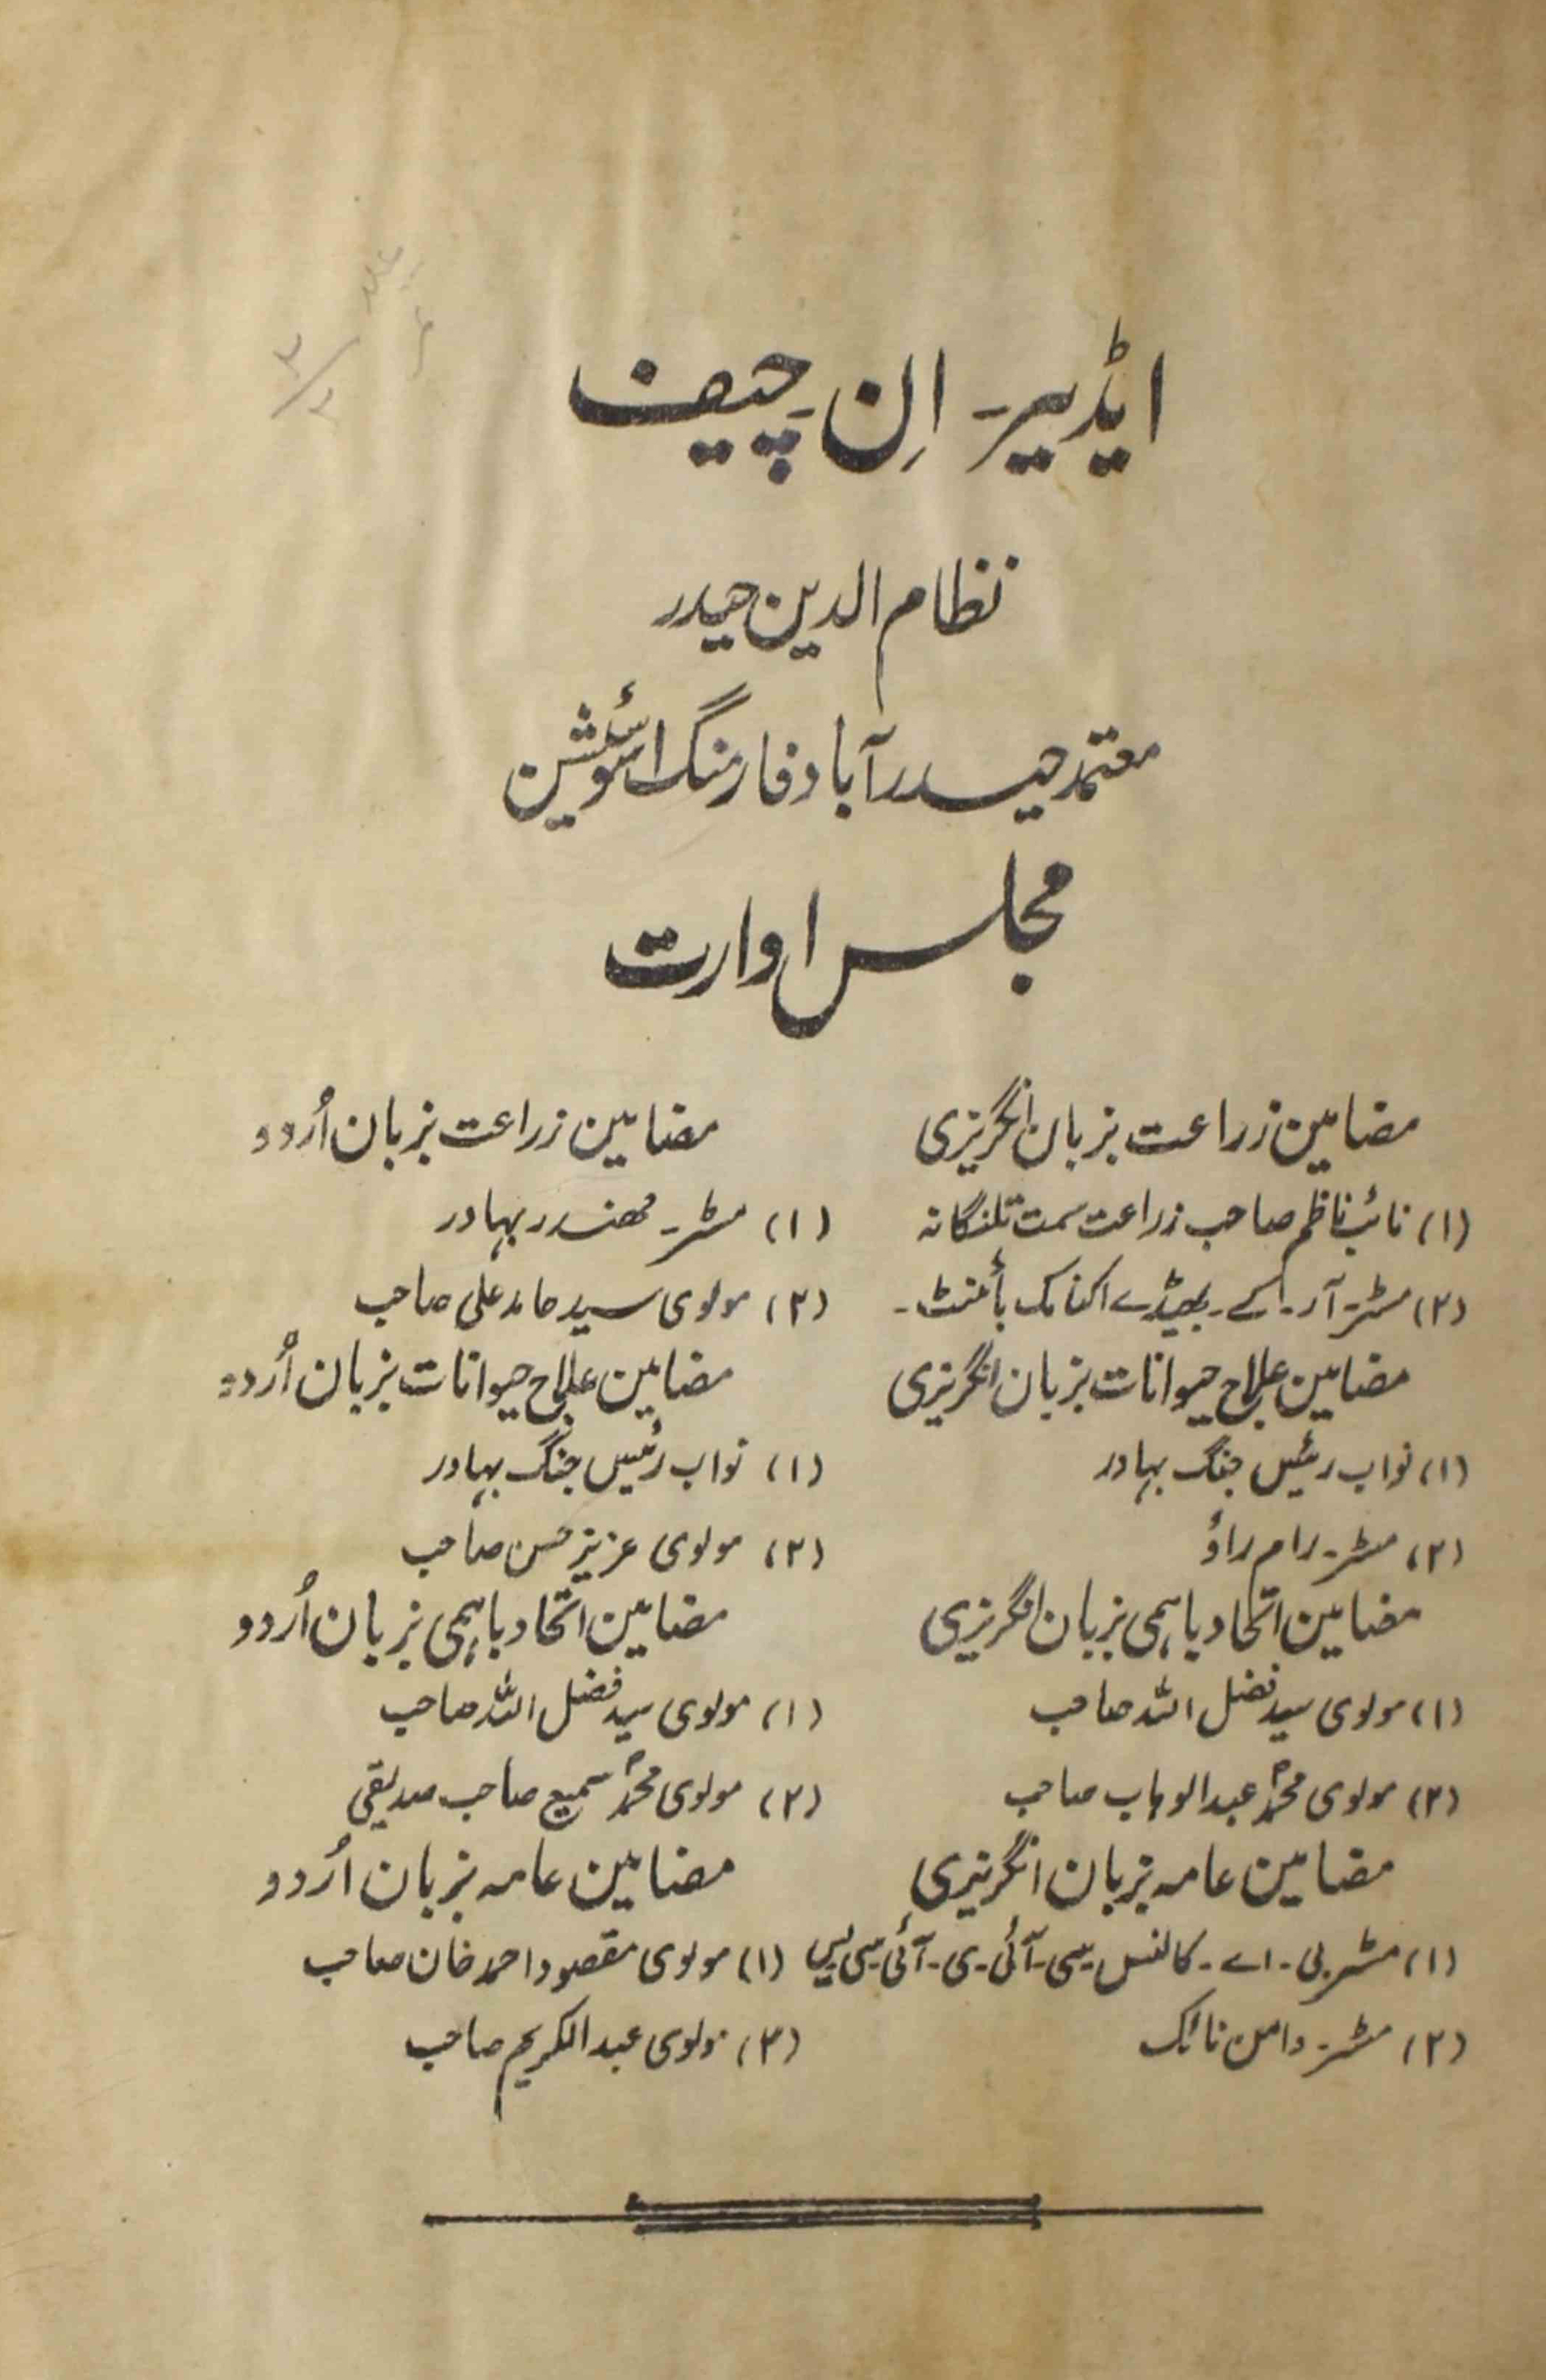 ایڈیٹر - اِن چیف
نظام الدین حیدر
معتمد حیدرآباد فارمنگ اسوسئیشن
مجلس ادارت
مضامین زراعت بزبان انگریزی
(۱) نائب ناظم صاحب زراعت سمت تلنگانہ
(۲) مسٹر - آر - کے - بھیڈے اکنامک باٹنسٹ -
مضامین علاج حیوانات بزبان انگریزی
(۱) نواب رئیس جنگ بہادر
(۲) مسٹر - رام راؤ
مضامین اتحاد باہمی بزبان انگریزی
(۱) مولوی سید فضل اللہ صاحب
(۲) مولوی محمد عبدالوہاب صاحب
مضامین عامہ بزبان انگریزی
(۱) مسٹر بی - اے - کالنس سی - آئی - ی - آئی سی یس
(۲) مسٹر - دامن نائک
مضامین زراعت بزبان اُردو
(۱) مسٹر - مھندر بہادر
(۲) مولوی سید حامد علی صاحب
مضامین علاج حیوانات بزبان اُردو
(۱) نواب رئیس جنگ بہادر
(۲) مولوی عزیز حسن صاحب
مضامین اتحاد باہمی بزبان اُردو
(۱) مولوی سید فضل اللہ صاحب
(۲) مولوی محمد سمیع صاحب صدیقی
مضامین عامہ بزبان اُردو
(۱) مولوی مقصود احمد خان صاحب
(۲) مولوی عبدالکریم صاحب